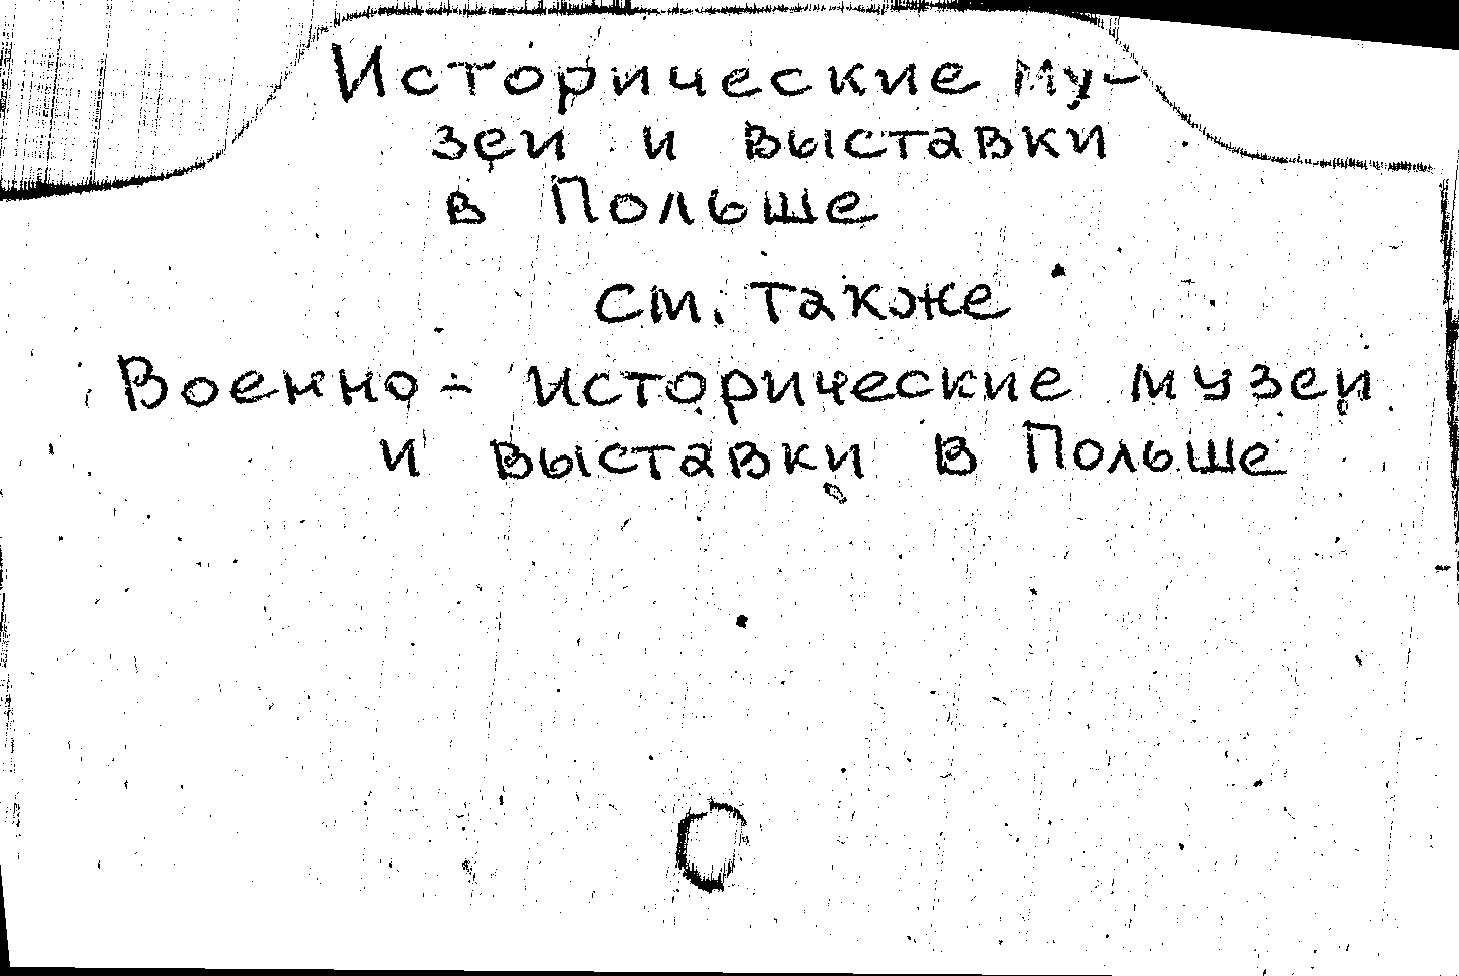 Исторические му-
зеи и выставки
в Польше
см. также
Военно-исторические музеи
и выставки в Польше